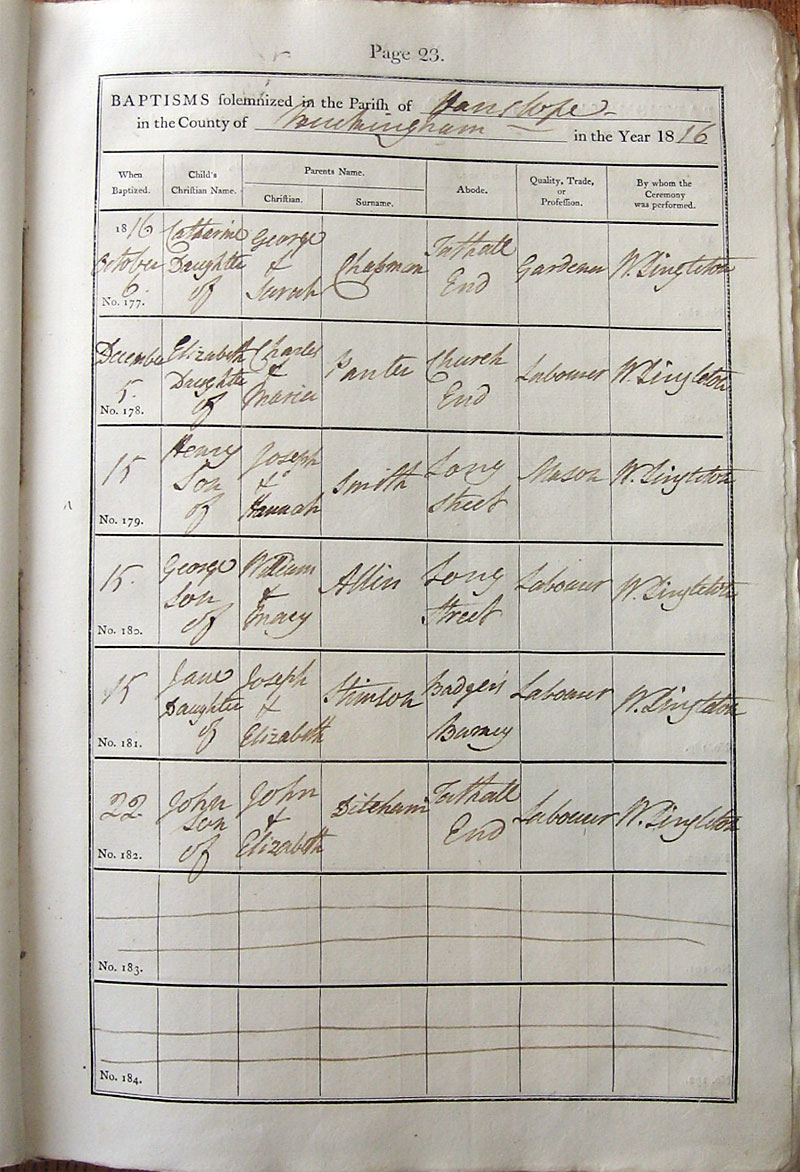 Page 23.
BAPTISMS solemnized in the Parish of Hanslope
in the County of Buckingham in the Year 1816
When Baptized.
Child's Christian Name.
Parents Name.
Christian.
Surname.
Abode.
Quality, Trade, or Profession.
By whom the Ceremony was performed.
1816
October
6.
No. 177.
Catharine
Daughter
of
George
&
Sarah
Chapman
Tathall
End
Gardener
W. Singleton
December
5.
No. 178.
Elizabeth
Daughter
of
Charles
&
Maria
Panter
Church
End
Labourer
W. Singleton
15
No. 179.
Henry
Son
of
Joseph
&
Hannah
Smith
Long
Street
Mason
W. Singleton
15.
No. 180.
George
Son
of
William
&
Mary
Allin
Long
Street
Labourer
W. Singleton
15
No. 181.
Jane
Daughter
of
Joseph
&
Elizabeth
Stimson
Badgers
Labourer
W. Singleton
22
No. 182.
John
Son
of
John
&
Elizabeth
Tathall
End
Labourer
W. Singleton
No. 183.
No. 184.